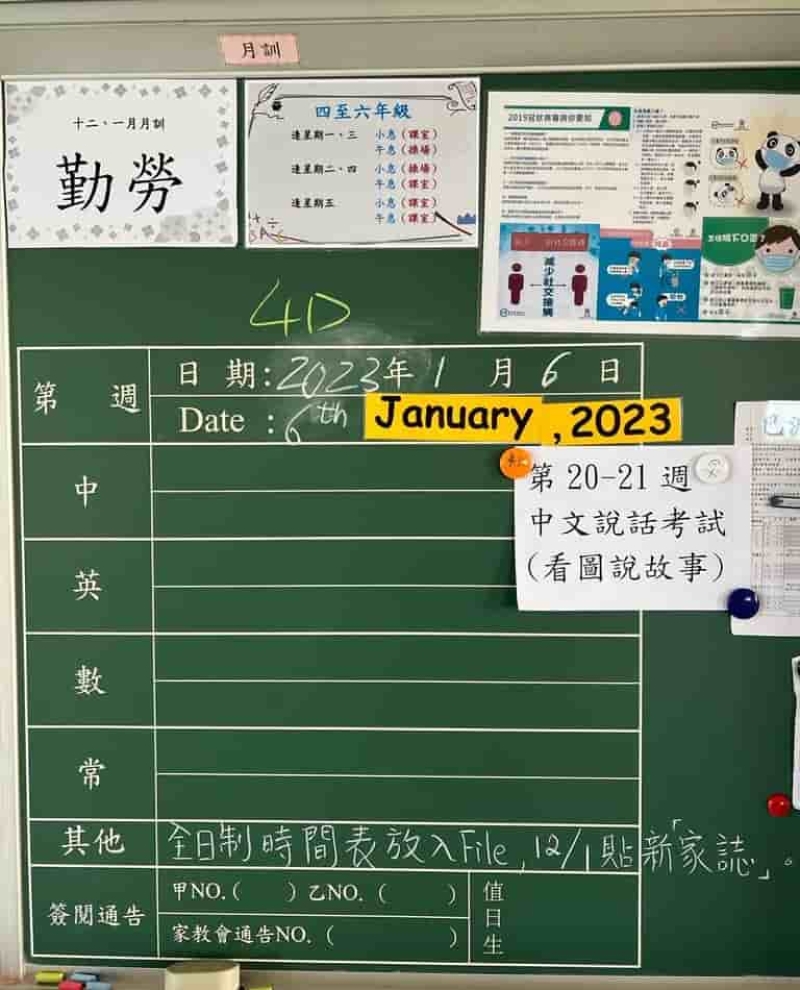 月訓
十二、一月月訓
勤勞
四至六年級
逢星期一、三 小息（課室）
午息（操場）
逢星期二、四 小息（操場）
午息（課室）
逢星期五 小息（課室）
午息（課室）
減少社交接觸
4D
第 週
日 期:2023年 1 月 6 日
Date : 6th January,2023
第 20-21 週
中文說話考試
(看圖說故事)
中
英
數
常
其他 全日制時間表放入File,12/1貼新「家誌」。
簽閱通告
甲NO.( ) 乙NO. ( )
家教會通告NO. ( )
值日生